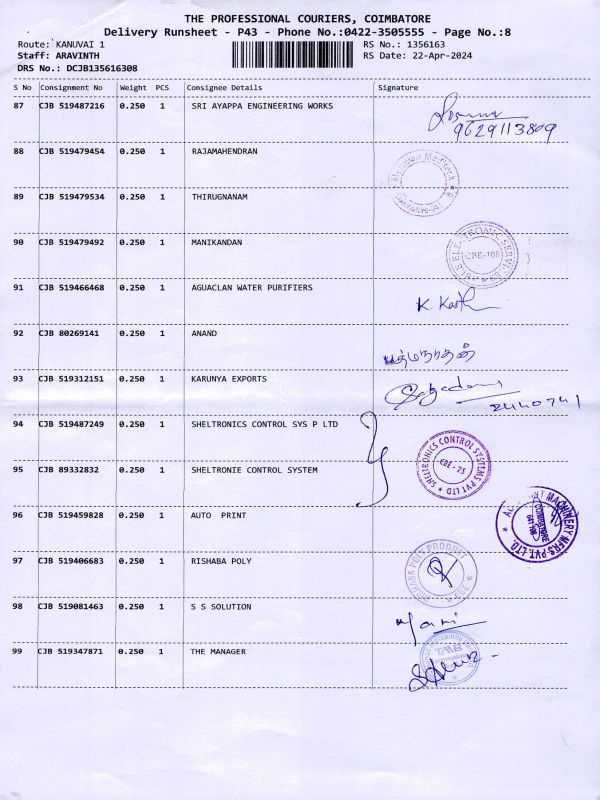 THE PROFESSIONAL COURIERS, COIMBATORE
Delivery Runsheet - P43 - Phone No.:0422-3505555 - Page No.:8
Route: KANUVAI 1 RS No.: 1356163
Staff: ARAVINTH RS Date: 22-Apr-2024
DRS No.: DCJB135616308
S No Consignment No Weight PCS Consignee Details Signature
87 CJB 519487216 0.250 1 SRI AYAPPA ENGINEERING WORKS
9629113809
88 CJB 519479454 0.250 1 RAJAMAHENDRAN
89 CJB 519479534 0.250 1 THIRUGNANAM
90 CJB 519479492 0.250 1 MANIKANDAN
ELECTRONIC SERVICES
CBE-108
91 CJB 519466468 0.250 1 AGUACLAN WATER PURIFIERS
K. Karth
92 CJB 80269141 0.250 1 ANAND
பத்மநாதன்
93 CJB 519312151 0.250 1 KARUNYA EXPORTS
2440741
94 CJB 519487249 0.250 1 SHELTRONICS CONTROL SYS P LTD
SHELTRONICS CONTROL SYSTEMS PVT LTD
CBE-25
95 CJB 89332832 0.250 1 SHELTRONIE CONTROL SYSTEM
96 CJB 519459828 0.250 1 AUTO PRINT
MACHINERY MFRS. PVT. LTD.
COIMBATORE
97 CJB 519406683 0.250 1 RISHABA POLY
RISHABA POLY PRODUCT
98 CJB 519081463 0.250 1 S S SOLUTION
Mani
99 CJB 519347871 0.250 1 THE MANAGER
TMB